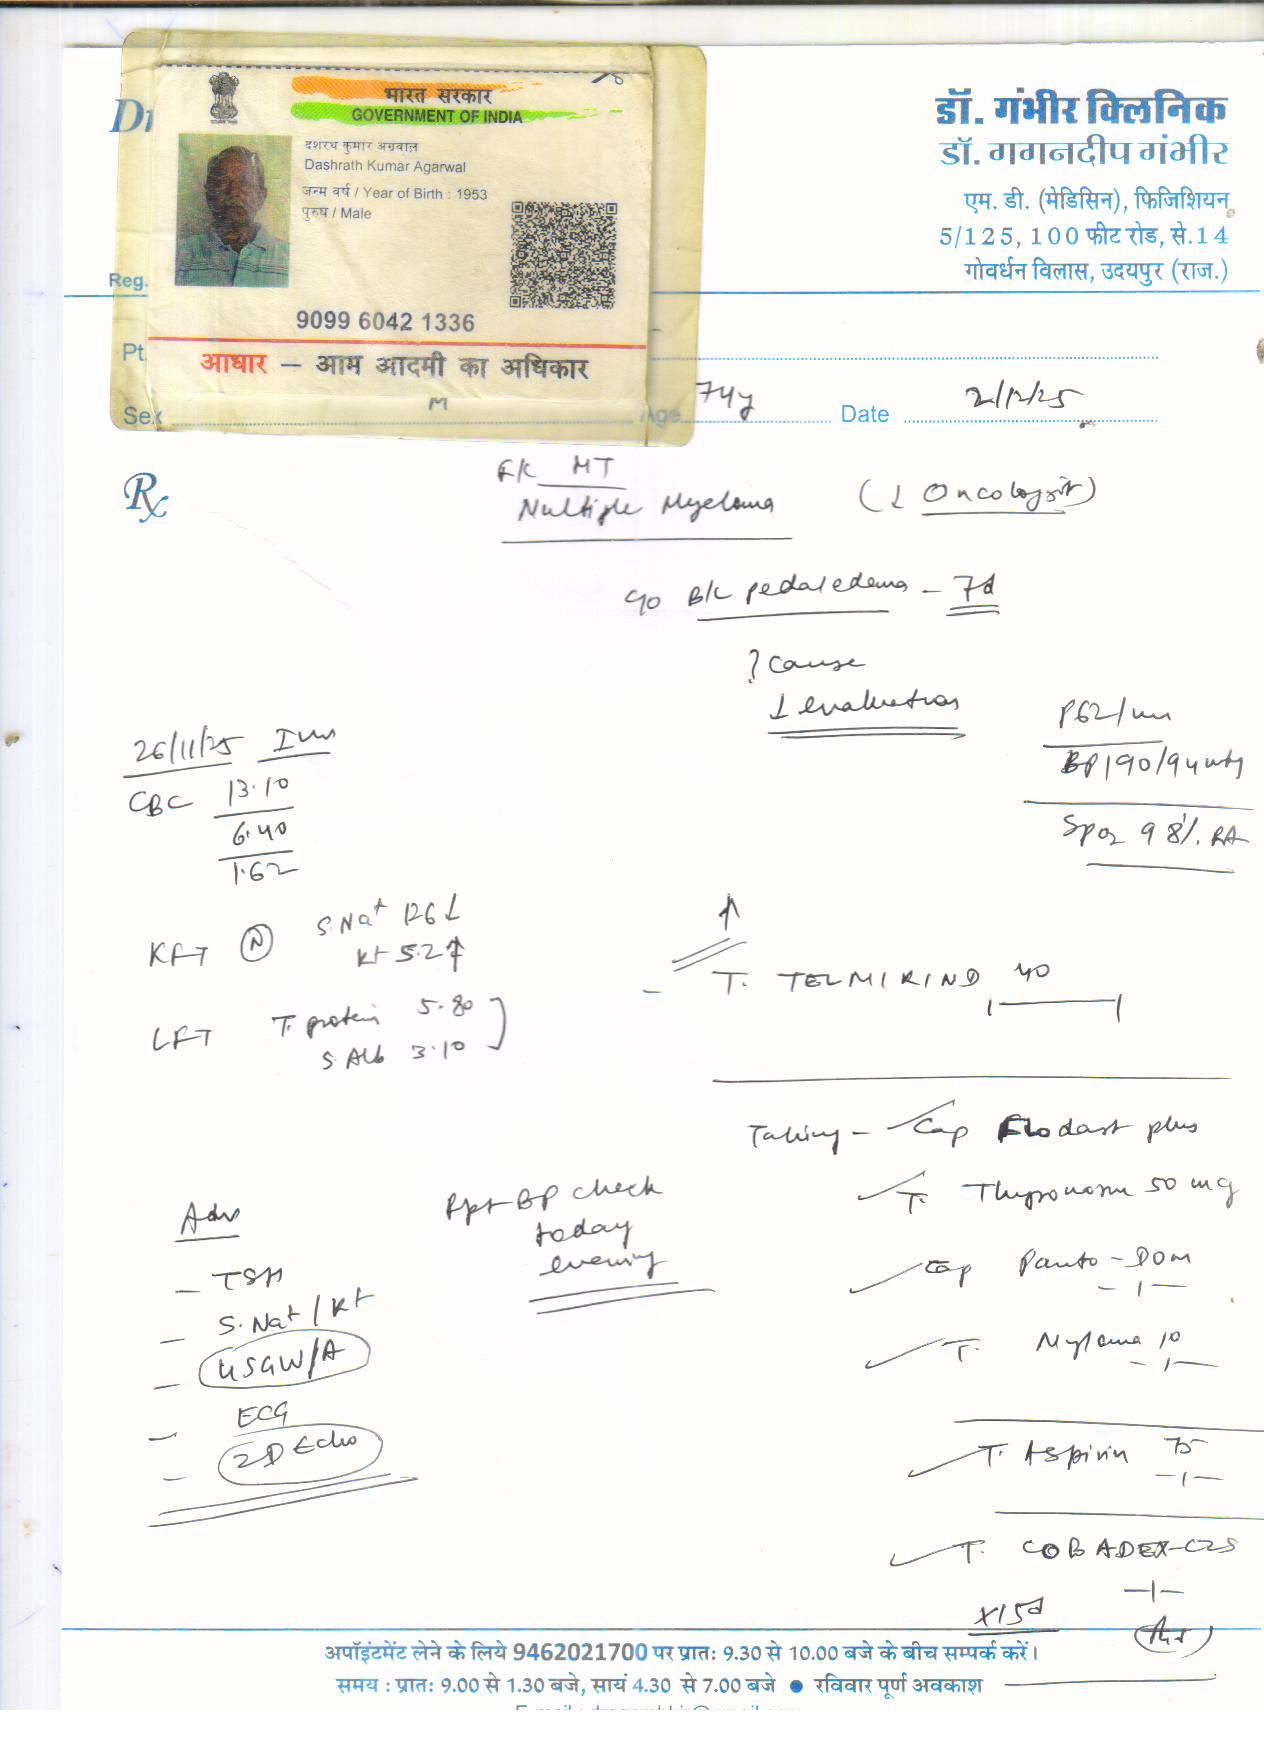 भारत सरकार
GOVERNMENT OF INDIA
दशरथ कुमार अग्रवाल
Dashrath Kumar Agarwal
जन्म वर्ष / Year of Birth : 1953
पुरुष / Male
9099 6042 1336
आधार – आम आदमी का अधिकार
डॉ. गंभीर क्लिनिक
डॉ. गगनदीप गंभीर
एम. डी. (मेडिसिन), फिजिशियन
5/125, 100 फीट रोड, से.14
गोवर्धन विलास, उदयपुर (राज.)
Reg.
Pt.
Sex M Age 74y Date 2/12/25
Rx
Multiple Myeloma (↓ Oncologist)
c/o B/L pedal edema - 7d
? Cause
↓ evaluation
P 62/min
BP 190/94 mmHg
SpO2 98% RA
26/11/25 Inv
CBC 13.10
6.40
1.62
KFT (N) S. Na+ 126 ↓
K+ 5.2 ↑
LFT T. protein 5.80
S. Alb 3.10
↑
- T. TELMIKIND 40
Taking - Cap Flodart plus
T. Thyronorm 50 mcg
Cap Panto-DOM
T. Mylama 10
T. Aspirin 75
T. COBADEX-CZS
x15d
Rpt BP check
today
evening
Adv
- TSH
- S. Na+ / K+
- USG W/A
- ECG
- 2D Echo
अपॉइंटमेंट लेने के लिये 9462021700 पर प्रात: 9.30 से 10.00 बजे के बीच सम्पर्क करें।
समय : प्रात: 9.00 से 1.30 बजे, सायं 4.30 से 7.00 बजे ● रविवार पूर्ण अवकाश